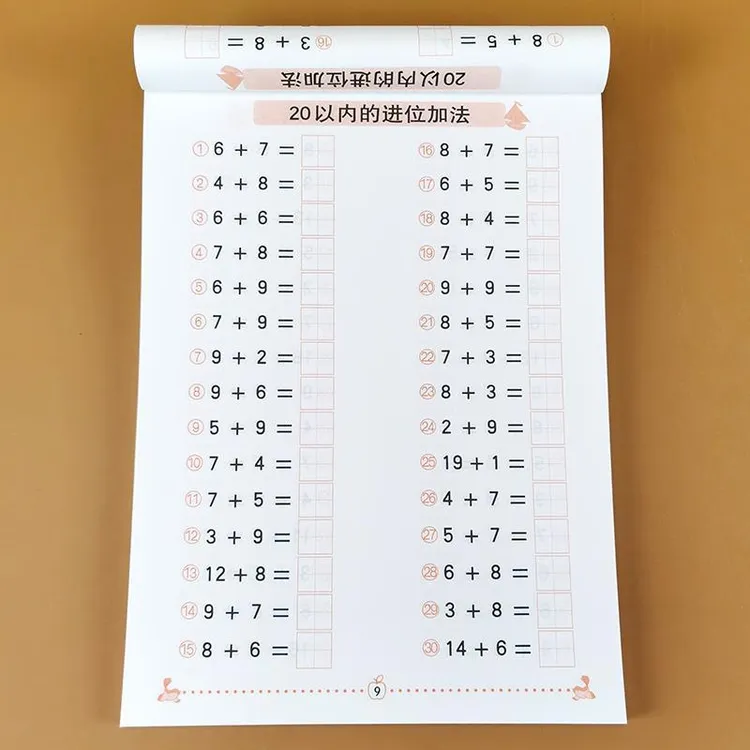 ⑯ 3 + 8 =
① 8 + 5 =
20以内的进位加法
20以内的进位加法
① 6 + 7 =
② 4 + 8 =
③ 6 + 6 =
④ 7 + 8 =
⑤ 6 + 9 =
⑥ 7 + 9 =
⑦ 9 + 2 =
⑧ 9 + 6 =
⑨ 5 + 9 =
⑩ 7 + 4 =
⑪ 7 + 5 =
⑫ 3 + 9 =
⑬ 12 + 8 =
⑭ 9 + 7 =
⑮ 8 + 6 =
⑯ 8 + 7 =
⑰ 6 + 5 =
⑱ 8 + 4 =
⑲ 7 + 7 =
⑳ 9 + 9 =
㉑ 8 + 5 =
㉒ 7 + 3 =
㉓ 8 + 3 =
㉔ 2 + 9 =
㉕ 19 + 1 =
㉖ 4 + 7 =
㉗ 5 + 7 =
㉘ 6 + 8 =
㉙ 3 + 8 =
㉚ 14 + 6 =
9